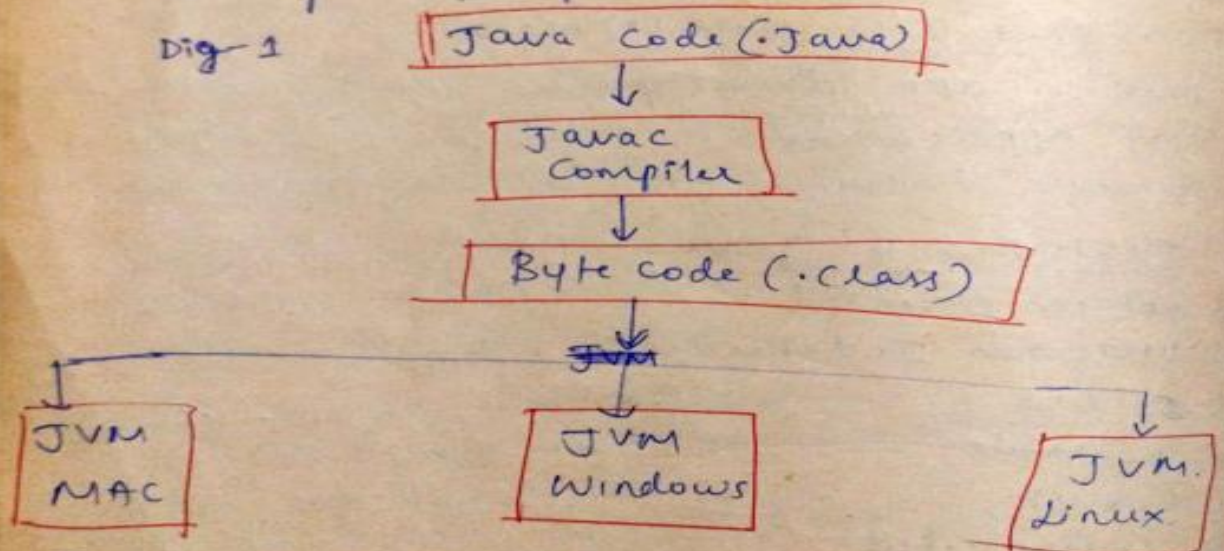 Dig-1
Java Code (.Java)
Javac
Compiler
Byte code (.Class)
JVM
JVM
MAC
JVM
Windows
JVM.
Linux